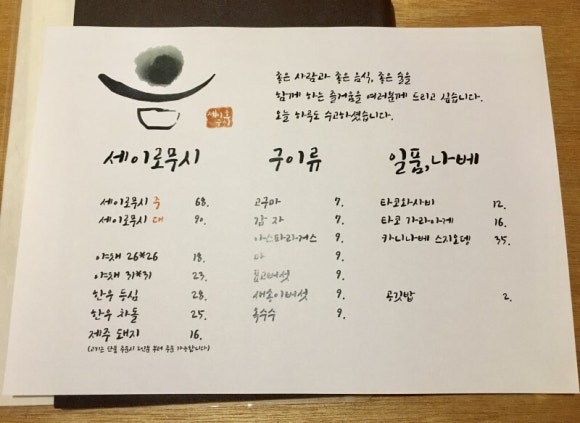 좋은 사람과 좋은 음식, 좋은 술을
함께 하는 즐거움을 여러분께 드리고 싶습니다.
오늘 하루도 수고하셨습니다.
세이로무시
세이로무시 중 68.
세이로무시 대 90.
야채 26*26 18.
야채 31*31 23.
한우 등심 28.
한우 차돌 25.
제주 돼지 16.
(고기는 단품 주문시 2인분 부터 주문 가능합니다)
구이류
고구마 7.
감자 7.
아스파라거스 9.
마 9.
표고버섯 9.
새송이버섯 9.
옥수수 9.
일품, 나베
타코와사비 12.
타코 가라아게 16.
카니나베 스지오뎅 35.
공깃밥 2.